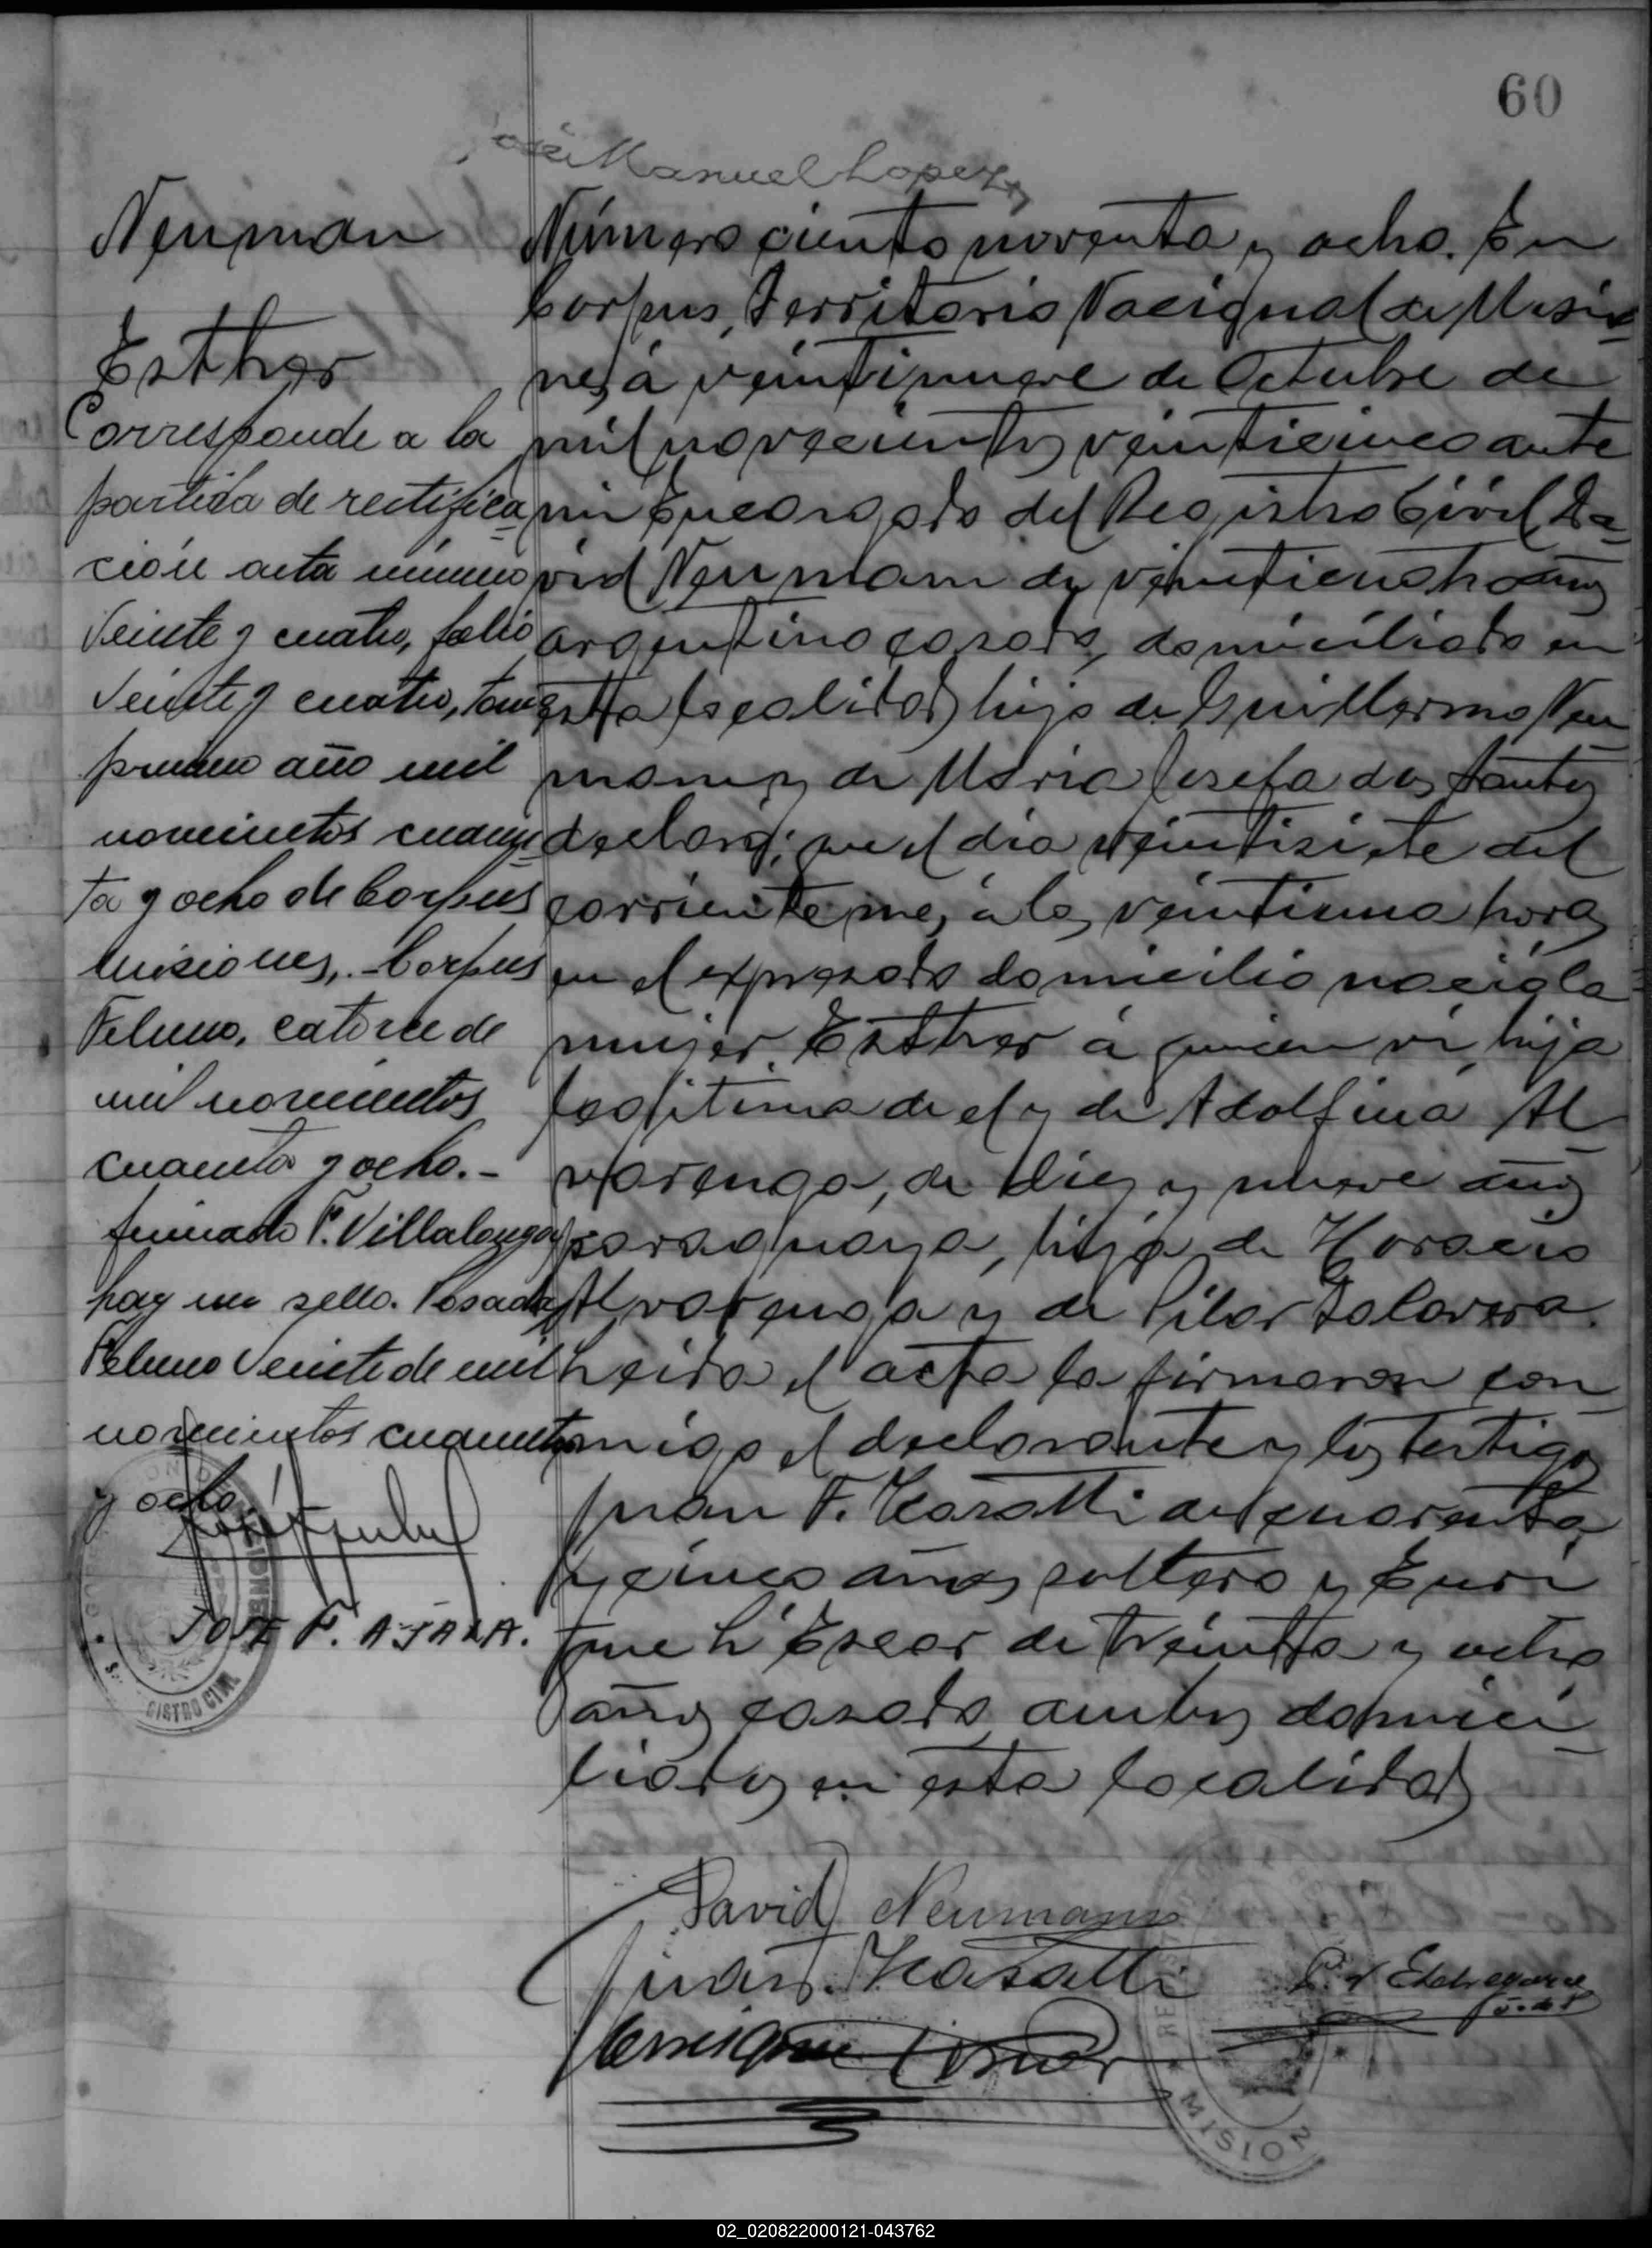 60
José Manuel Lopez
Neuman
Esther
Corresponde a la
partida de rectifica
ción acta número
Veinte y cuatro, folio
Veinte y cuatro, tomo
primero año mil
novecientos cuaren
ta y ocho de Corpus
Misiones, - Corpus
Febrero, catorce de
mil novecientos
cuarenta y ocho. -
firmado F. Villalonga
hay un sello. Posadas
Febrero Veinte de mil
novecientos cuarenta
y ocho.
JOSE F. AYALA.
Número ciento noventa y ocho. En
Corpus, Territorio Nacional de Misio
nes, á veintinueve de Octubre de
mil novecientos veinticinco ante
mi Encargado del Registro Civil, Da
vid Neumann de veinticuatro años
argentino casado, domiciliado en
esta localidad, hijo de Guillermo Neu
mann y de Maria Josefa dos Santos
declaró: que el dia veintisiete del
corriente mes, á las veintiuna horas
en el expresado domicilio nació la
mujer Esther á quien ví, hija
legítima de el y de Adolfina Al
varenga, de diez y nueve años
paraguaya, hija de Horacio
Alvarenga y de Pilar Talavera.
Leida el acta la firmaron con
migo el declarante y los testigos
Juan F. de cuarenta
y cinco años soltero y Enri
que de treinta y ocho
años casado ambos domici
liados en esta localidad
David Neumann
Juan
Enrique
MISIO
GISTRO CIVIL